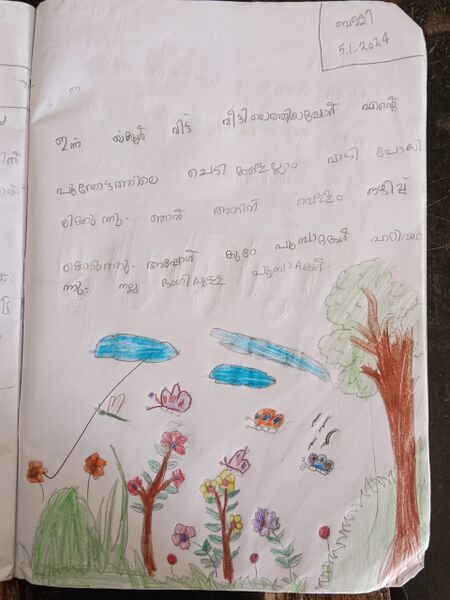 വെള്ളി
5.1.2024
ഇന്ന് സ്കൂൾ വിട്ട് വീട്ടിലെത്തിയപ്പോൾ എൻ്റെ
പൂന്തോട്ടത്തിലെ ചെടികളെല്ലാം വാടി പോയി
രിക്കുന്നു. ഞാൻ അതിന് വെള്ളം ഒഴിച്ച്
കൊടുത്തു. അപ്പോൾ കുറേ പൂമ്പാറ്റകൾ പാറിവ
ന്നു. നല്ല ഭംഗിയുള്ള പൂമ്പാറ്റകൾ.